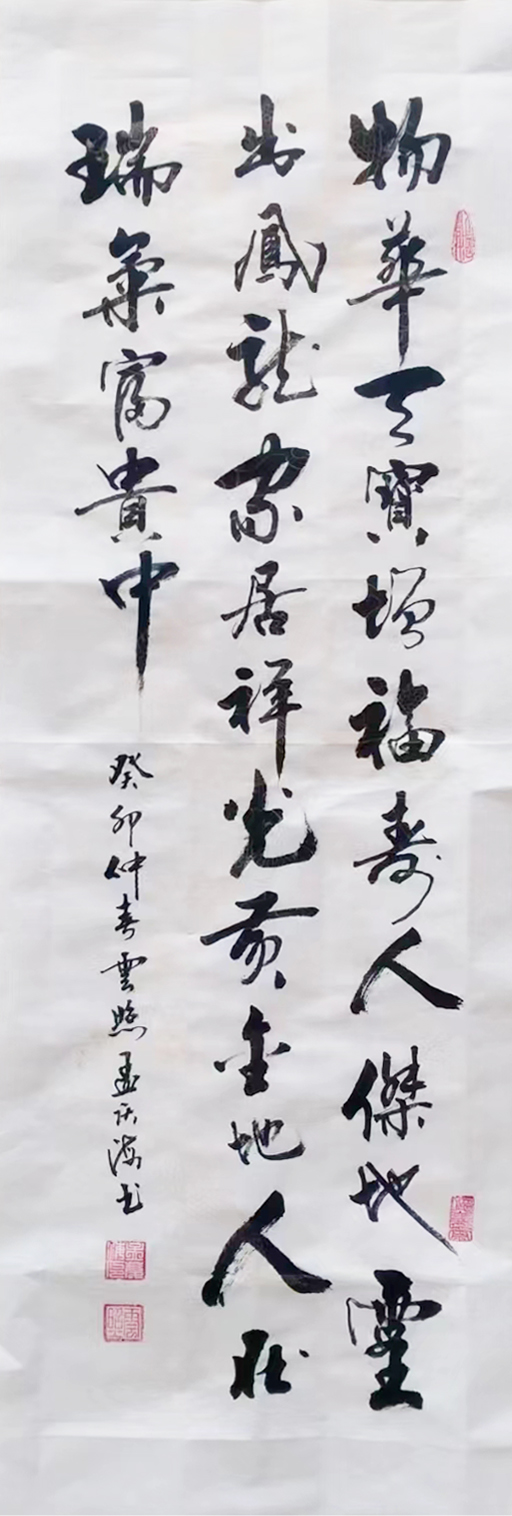 物華天寶增福壽人傑地靈
出鳳龍家居祥光黄金地人壯
瑞氣富貴中
癸卯仲春雲照孟庆海书